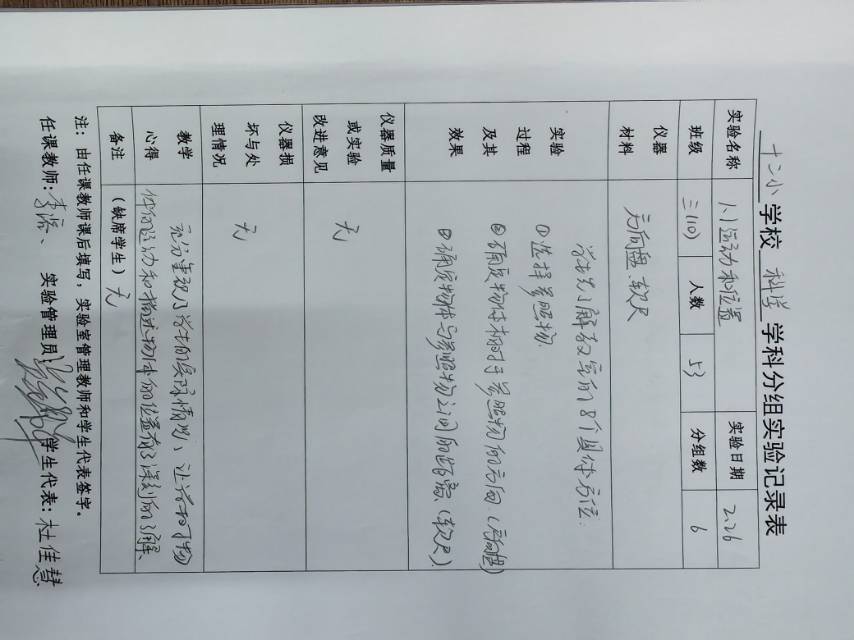 十二小 学校 科学 学科分组实验记录表
实验名称 1.1 运动和位置 实验日期 2.26
班级 三(10) 人数 53 分组数 6
仪器材料 方向盘、软尺
实验过程及其效果
学生先了解教室的8个具体方位.
①选择参照物.
②确定物体相对于参照物的方向.(方向盘)
③确定物体与参照物之间的距离.(软尺)
仪器质量或实验改进意见 无
仪器损坏与处理情况 无
教学心得
充分重视了学生的实际情况、让学生对物
体的运动和描述物体的位置有了深刻的了解、
备注 (缺席学生) 无
注:由任课教师课后填写,实验室管理教师和学生代表签字。
任课教师: 实验管理员: 学生代表:杜佳慧